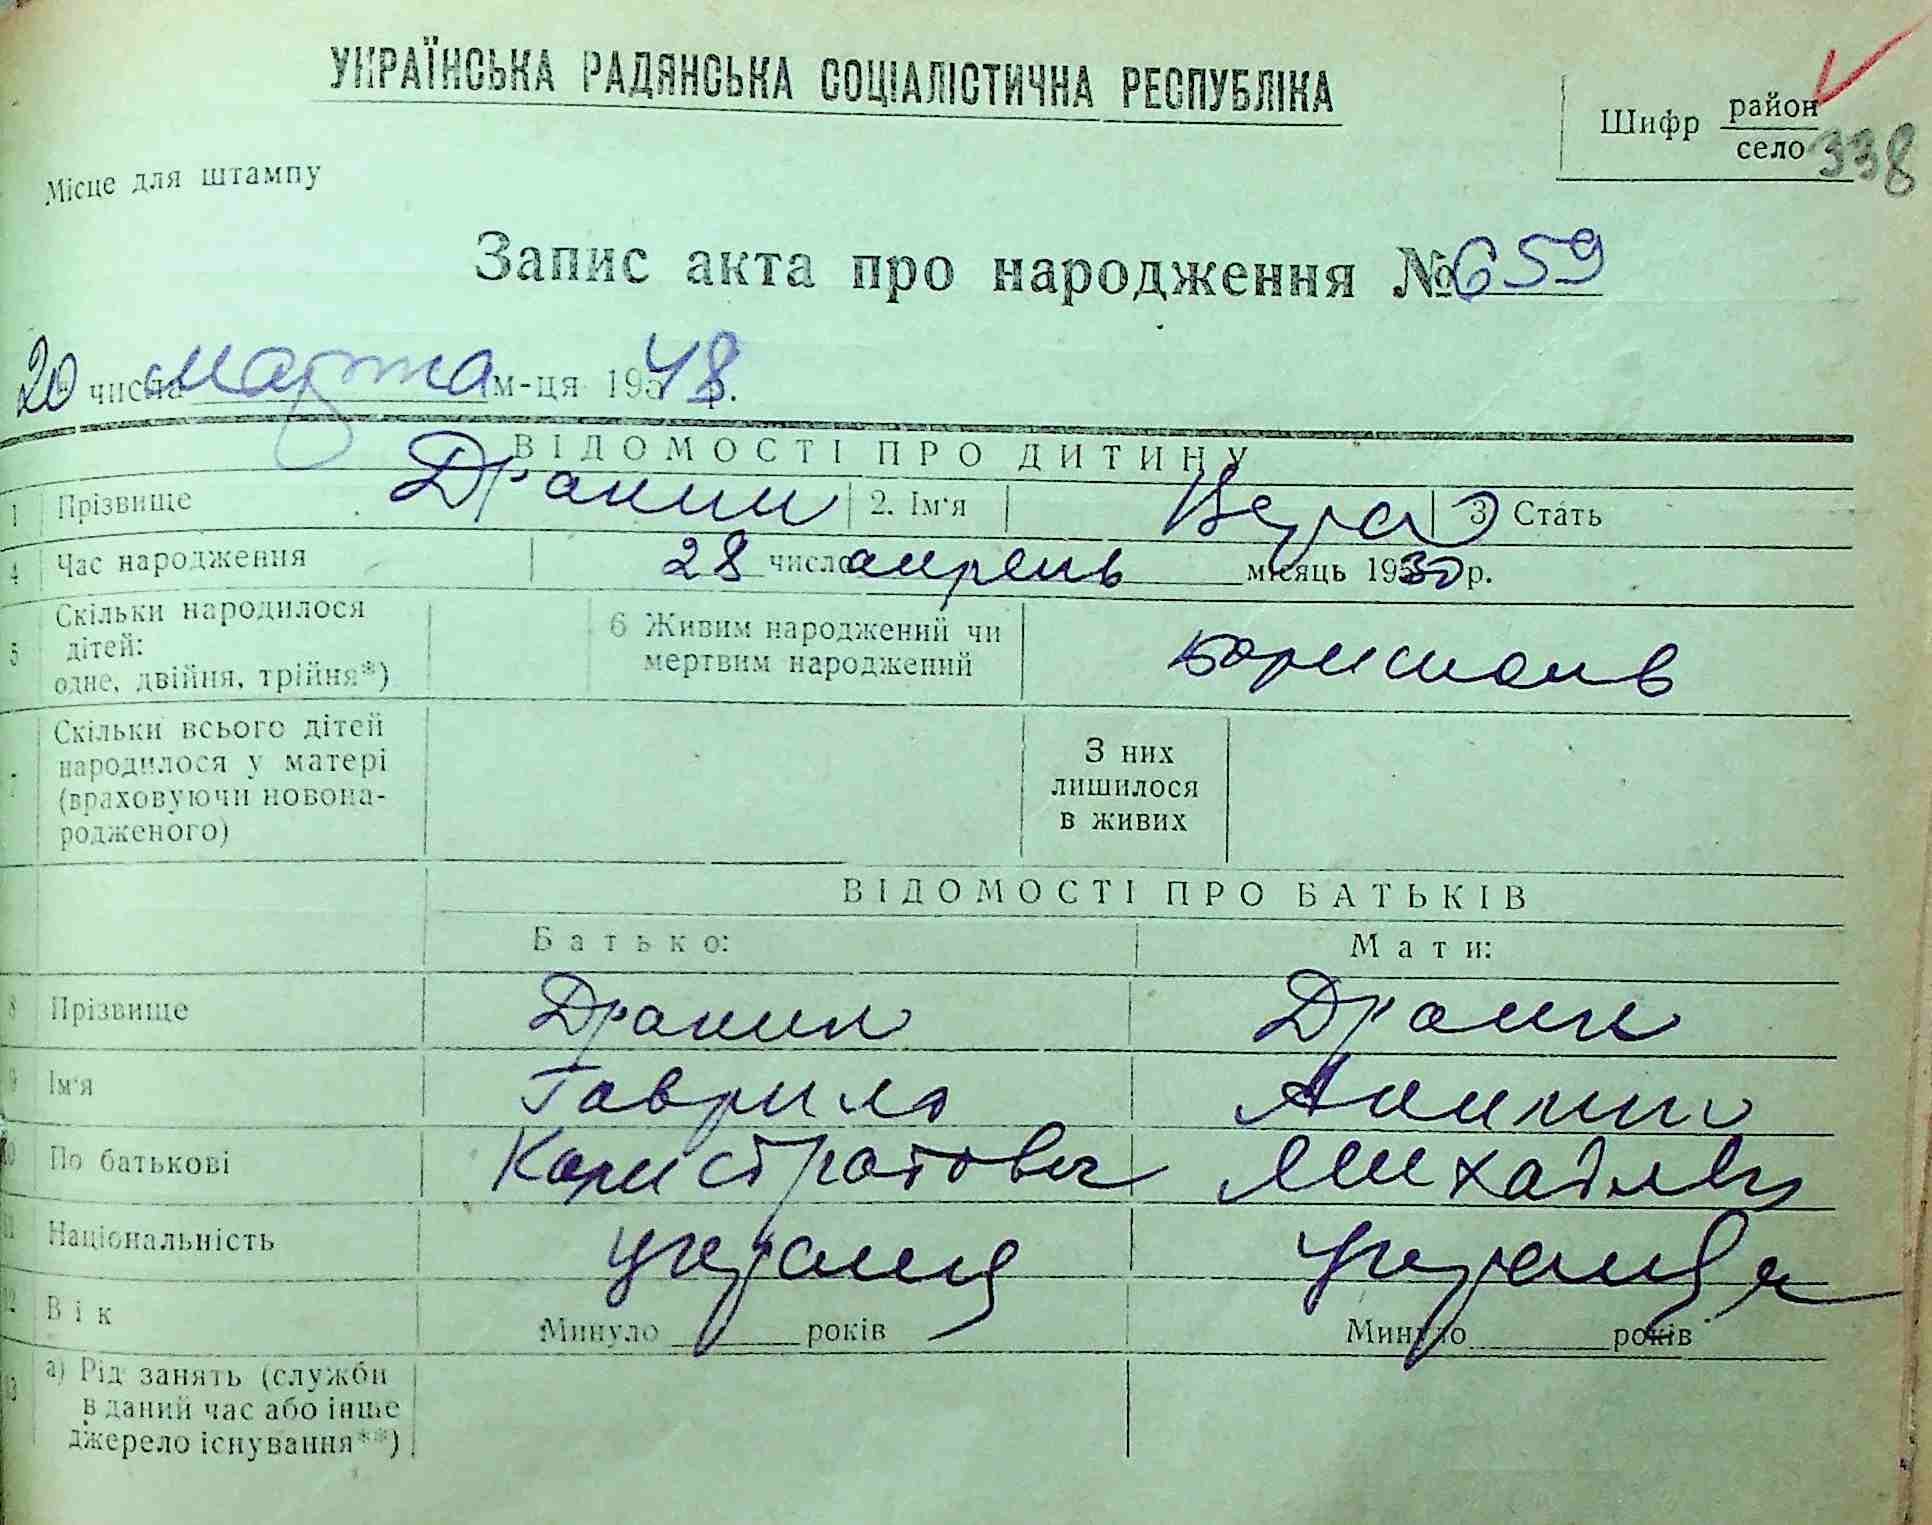 УКРАЇНСЬКА РАДЯНСЬКА СОЦІАЛІСТИЧНА РЕСПУБЛІКА
Шифр район
село 338
Місце для штампу
Запис акта про народження № 659
20 числа марта м-ця 195 48 р.
ВІДОМОСТІ ПРО ДИТИНУ
1 Прізвище 2. Ім'я Вера 3 Стать
4 Час народження 28 число апрень місяць 195 30 р.
5 Скільки народилося
дітей:
одне, двійня, трійня*)
6 Живим народжений чи
мертвим народжений
7 Скільки всього дітей
народилося у матері
(враховуючи новона-
родженого)
З них
лишилося
в живих
ВІДОМОСТІ ПРО БАТЬКІВ
Батько: Мати:
8 Прізвище
9 Ім'я Гаврило
10 По батькові Каристратович
11 Національність
12 Вік Минуло років Минуло років
13 а) Рід занять (служби
в даний час або інше
джерело існування**)